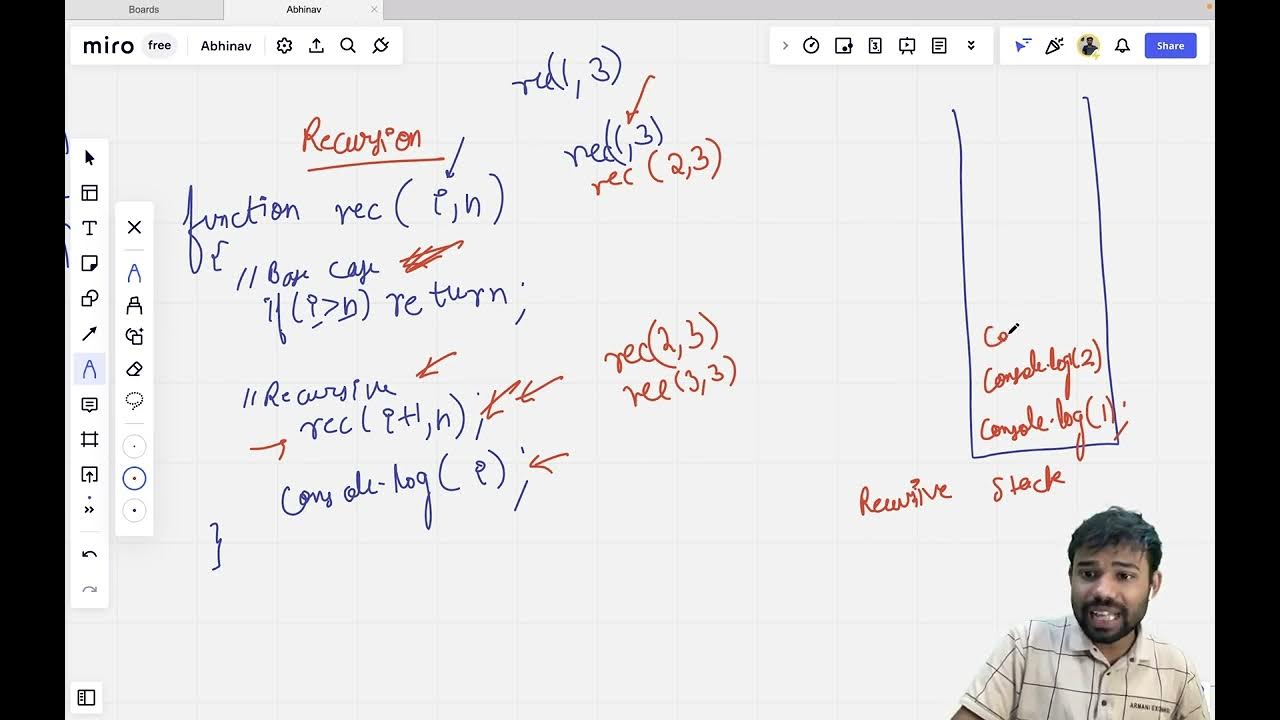 Boards
Abhinav
miro free Abhinav
3
Share
rec(1, 3)
Recursion
rec(1,3)
rec (2,3)
function rec( i,n)
{
// Base case
if(i>n) return;
rec(2,3)
rec(3,3)
// Recursive
rec(i+1,n);
console.log( i);
}
Co
Console.log(2)
Console.log(1);
Recursive Stack
T
ARMANI EXCHANGE